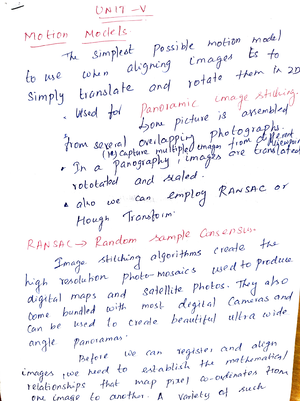 UNIT-V
Motion Models
The simplest possible motion model
to use when aligning images is to
simply translate and rotate them in 2D
• Used for Panoramic image stitching.
Some picture is assembled
from several overlapping photographs.
(ie) capture multiple images from different viewpoints
• In a panography, images are translated
rototated and scaled.
• also we can employ RANSAC or
Hough Transform.
RANSAC → Random sample Consensus.
Image stitching algorithms create the
high resolution photo-mosaics used to produce
digital maps and satellite photos. They also
come bundled with most degital Cameras and
can be used to create beautiful ultra wide
angle panoramas.
Before we can register and align
images, we need to establish the mathematical
relationships that map pixel co-ordinates from
one image to another. A variety of such